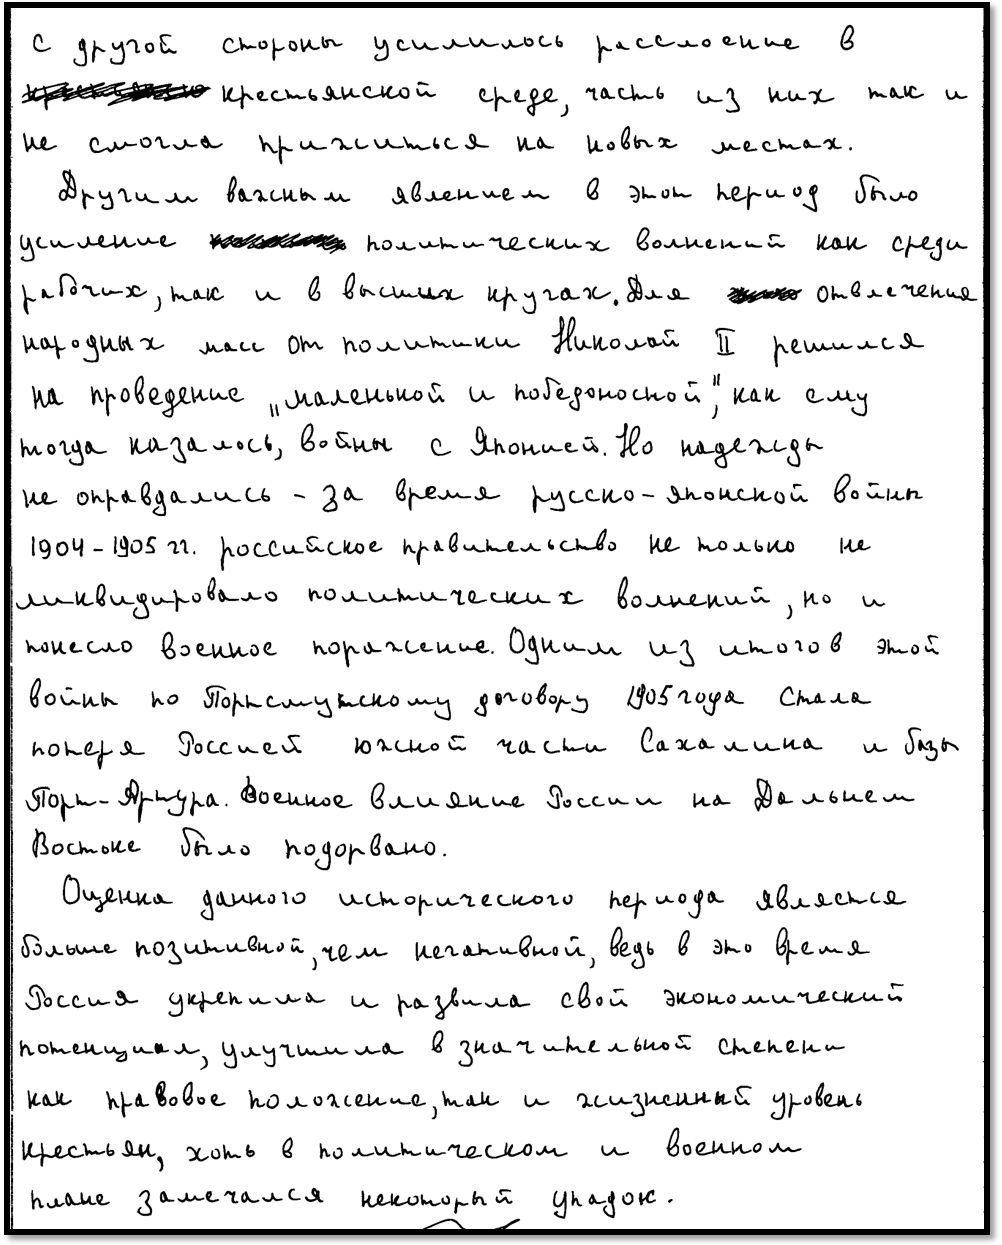 с другой стороны усилилось расслоение в
крестьянской среде, часть из них так и
не смогла прижиться на новых местах.
Другим важным явлением в этот период было
усиление политических волнений как среди
рабочих, так и в высших кругах. Для отвлечения
народных масс от политики Николай II решился
на проведение „маленькой и победоносной", как ему
тогда казалось, войны с Японией. Но надежды
не оправдались – за время русско-японской войны
1904-1905 гг. российское правительство не только не
ликвидировало политических волнений, но и
понесло военное поражение. Одним из итогов этой
войны по Портсмутскому договору 1905 года стала
потеря Россией южной части Сахалина и базы
Порт-Артура. Военное влияние России на Дальнем
Востоке было подорвано.
Оценка данного исторического периода является
больше позитивной, чем негативной, ведь в это время
Россия укрепила и развила свой экономический
потенциал, улучшила в значительной степени
как правовое положение, так и жизненный уровень
крестьян, хоть в политическом и военном
плане замечался некоторый упадок.